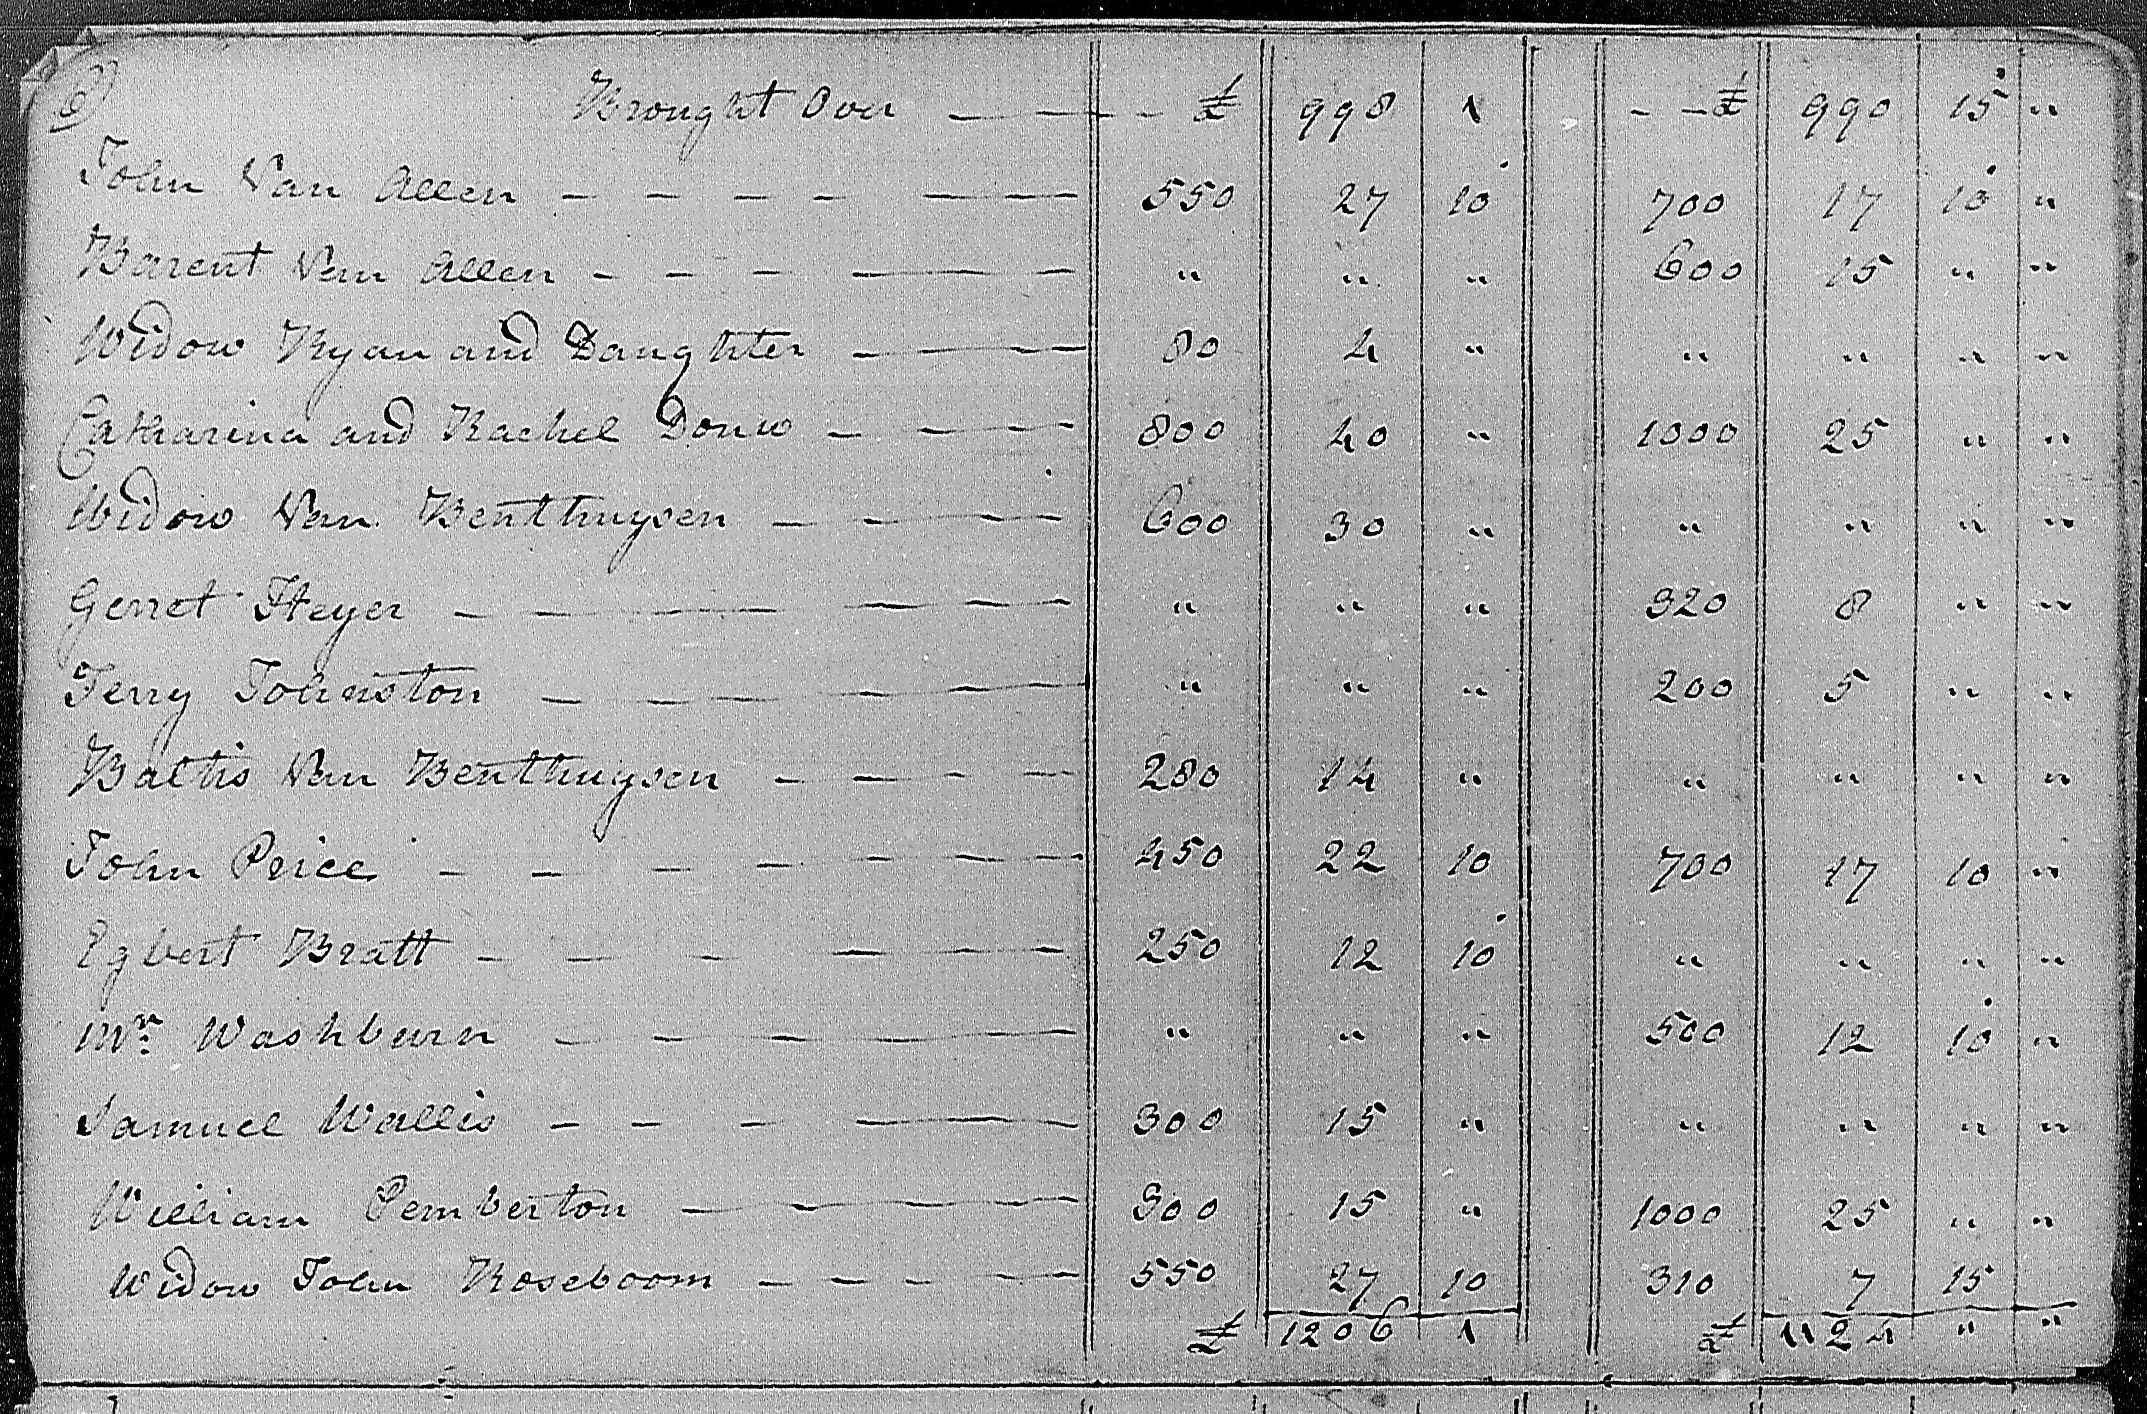 6
Brought Over — — - £ 998 1 - - £ 990 15 "
John Van Allen - - - - — — 550 27 10 700 17 10 "
Barent Van Allen - - - — — " " " 600 15 " "
Widow Ryan and Daughter - — — 80 4 " " " " "
Catharina and Rachel Douw - - — — 800 40 " 1000 25 " "
Widow Van Benthuysen - - — — 600 30 " " " " "
Gerret Heyer - — — — — " " " 320 8 " "
Jerry Johnston - - — - — — " " " 200 5 " "
Baltis Van Benthuysen - — - — 280 14 " " " " "
John Price - - - - - — — 450 22 10 700 17 10 "
Egbert Bratt - - - — — 250 12 10 " " " "
Mr. Washburn - - - — — " " " 500 12 10 "
Samuel Wallis - - - — — 300 15 " " " " "
William Pemberton - - — — 300 15 " 1000 25 " "
Widow John Roseboom - - - - — 550 27 10 310 7 15
£ 1206 1 £ 1124 " "